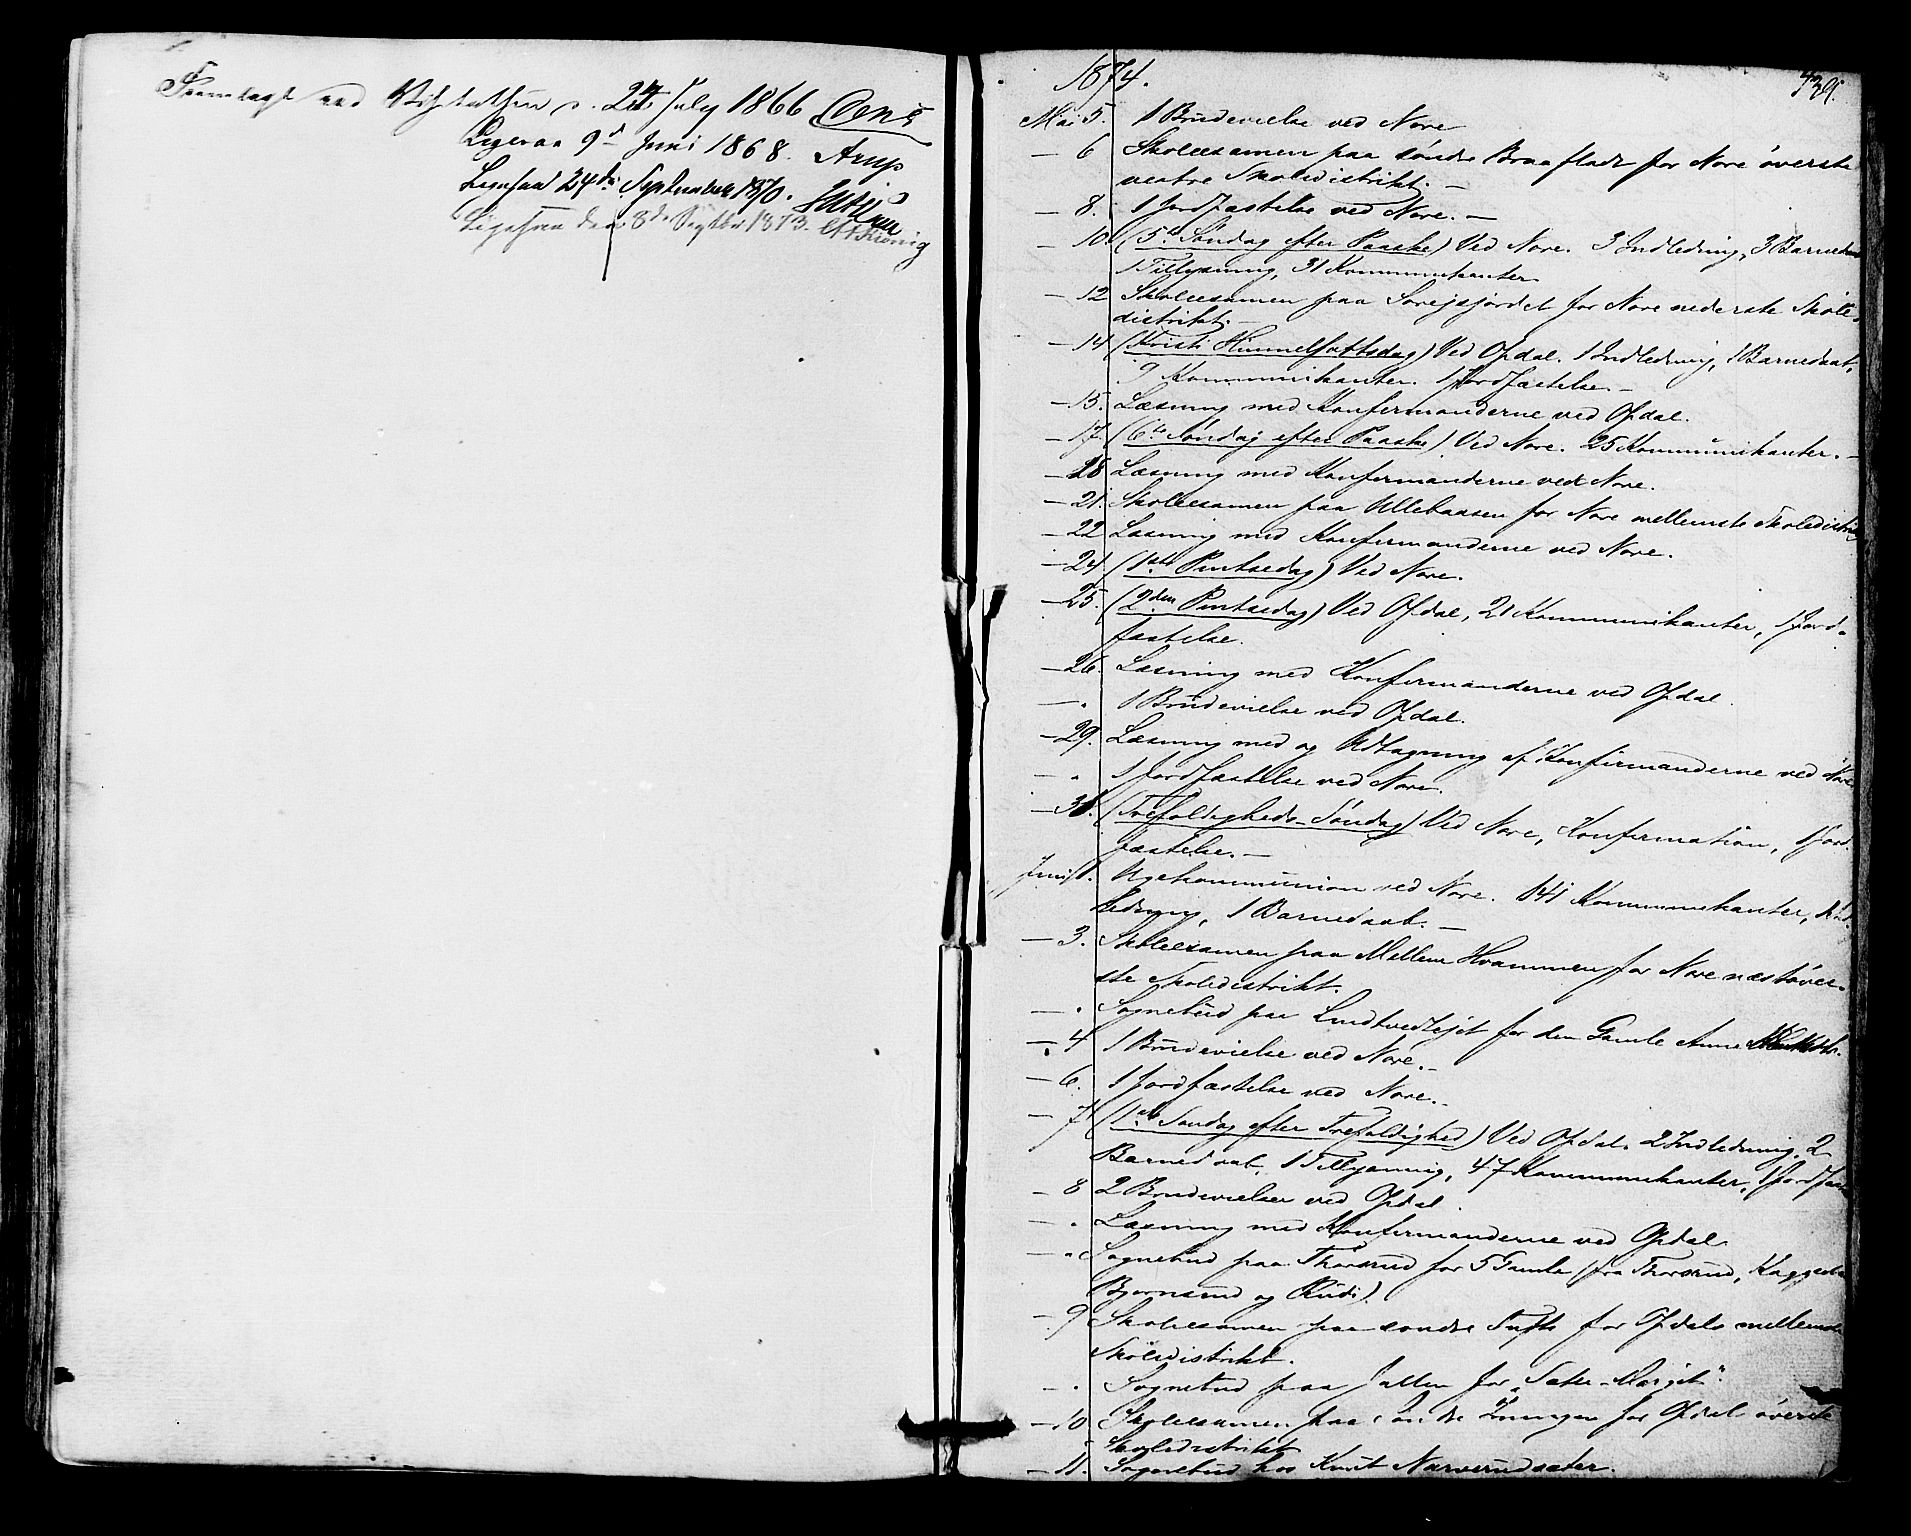 Fremlagt ved Visitatsen d. 24 July 1866
Ligesaa 9d Juni 1868. Arup
Ligesaa 24de September 1870.
Ligesaa den 8de Septbr 1873.
1874.
Mai 5. 1 Brudevielse ved Nore
— 6 Skoleexamen paa søndre Braafladt for Nore øverste
vestre Skoledistrikt. —
— 8. 1 Jordfæstelse ved Nore. —
— 10. (5te Søndag efter Paaske) Ved Nore. 3 Indledning, 3 Barnedaab
1 Tillysning, 31 Kommunikanter
— 12 Skoleexamen paa for Nore nederste Skole-
distrikt. —
— 14 (Kristi Himmelfartsdag) Ved Opdal. 1 Indledning, 1 Barnedaab,
9 Kommunikanter. 1 Jordfæstelse. —
— 15. Læsning med Konfirmanderne ved Opdal.
— 17. (6te Søndag efter Paaske) Ved Nore. 25 Kommunikanter. —
— 18 Læsning med Konfirmanderne ved Nore.
— 21. Skoleexamen paa Ullebaasen for Nore mellemste Skoledistrikt
— 22 Læsning med Konfirmanderne ved Nore.
— 24 (1ste Pintsedag) Ved Nore.
— 25. (2den Pintsedag) Ved Opdal, 21 Kommunikanter, 1 Jord-
fæstelse.
— 26. Læsning med Konfirmanderne ved Opdal.
— . 1 Brudevielse ved Opdal.
— 29. Læsning med og Udtagning af Konfirmanderne ved Nore
— . 1 Jordfæstelse ved Nore.
— 31. (Trefoldigheds-Søndag) Ved Nore, Konfirmation, 1 Jord-
fæstelse. —
Juni 1. Ugekommunion ved Nore. 141 Kommunikanter, 1 Ind-
ledning, 1 Barnedaab. —
— 3. Skoleexamen paa Mellem Hvammen for Nore næstøver-
ste Skoledistrikt.
— . Sognebud paa for den Gamle Anne
— 4 1 Brudevielse ved Nore. —
— 6. 1 Jordfæstelse ved Nore. —
— 7 (1ste Søndag efter Trefoldighed) Ved Opdal. 2 Indledning, 2
Barnedaab, 1 Tillysning, 47 Kommunikanter, 1 Jordfæst
— 8 2 Brudevielser ved Opdal.
— . Læsning med Konfirmanderne ved Opdal
— . Sognebud paa Thorsrud for 5 Gamle (fra Thorsrud,
Bjørnsrud og Rudi).
— 9 Skoleexamen paa søndre Tufte for Opdals mellemste
Skoledistrikt.
— . Sognebud paa for „Sæter-Margit“.
— 10 Skoleexamen paa søndre for Opdal øverste
Skoledistrikt
— 11. Sognebud hos Knut Narverudsæter.